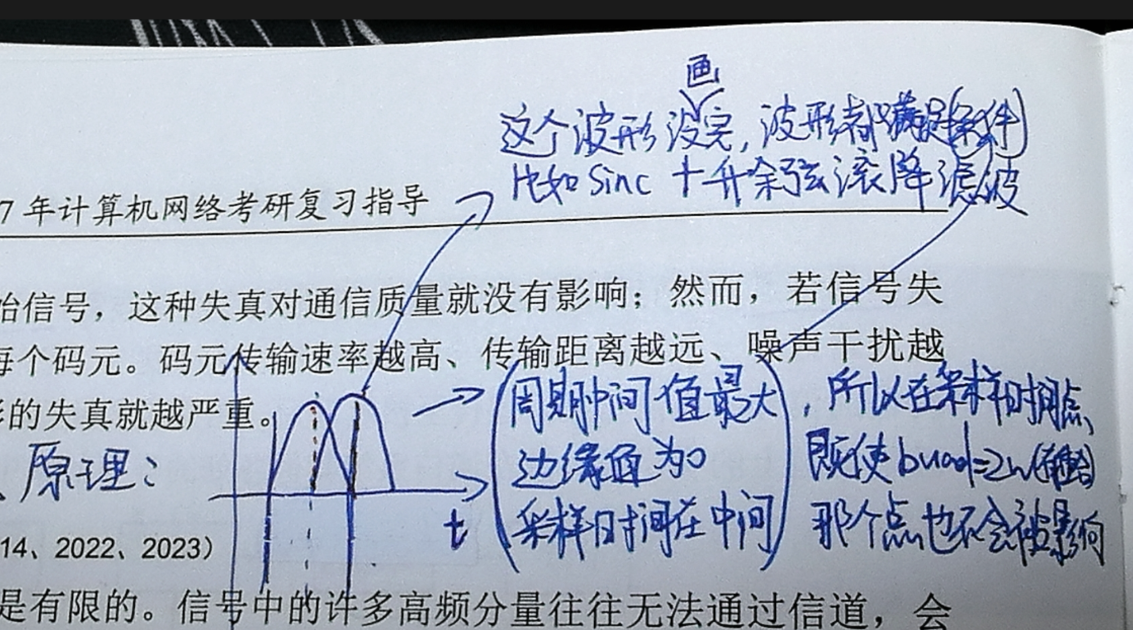 画
这个波形没完，波形都满足条件
比如 Sinc 十升余弦滚降滤波
7 年计算机网络考研复习指导
始信号，这种失真对通信质量就没有影响；然而，若信号失
每个码元。码元传输速率越高、传输距离越远、噪声干扰越
形的失真就越严重。
周期中间值最大，所以在采样时间点
边缘值为0 既使buad=2w(有重叠)
采样时间在中间 那个点也不会被影响
原理：
t
14、2022、2023）
是有限的。信号中的许多高频分量往往无法通过信道，会